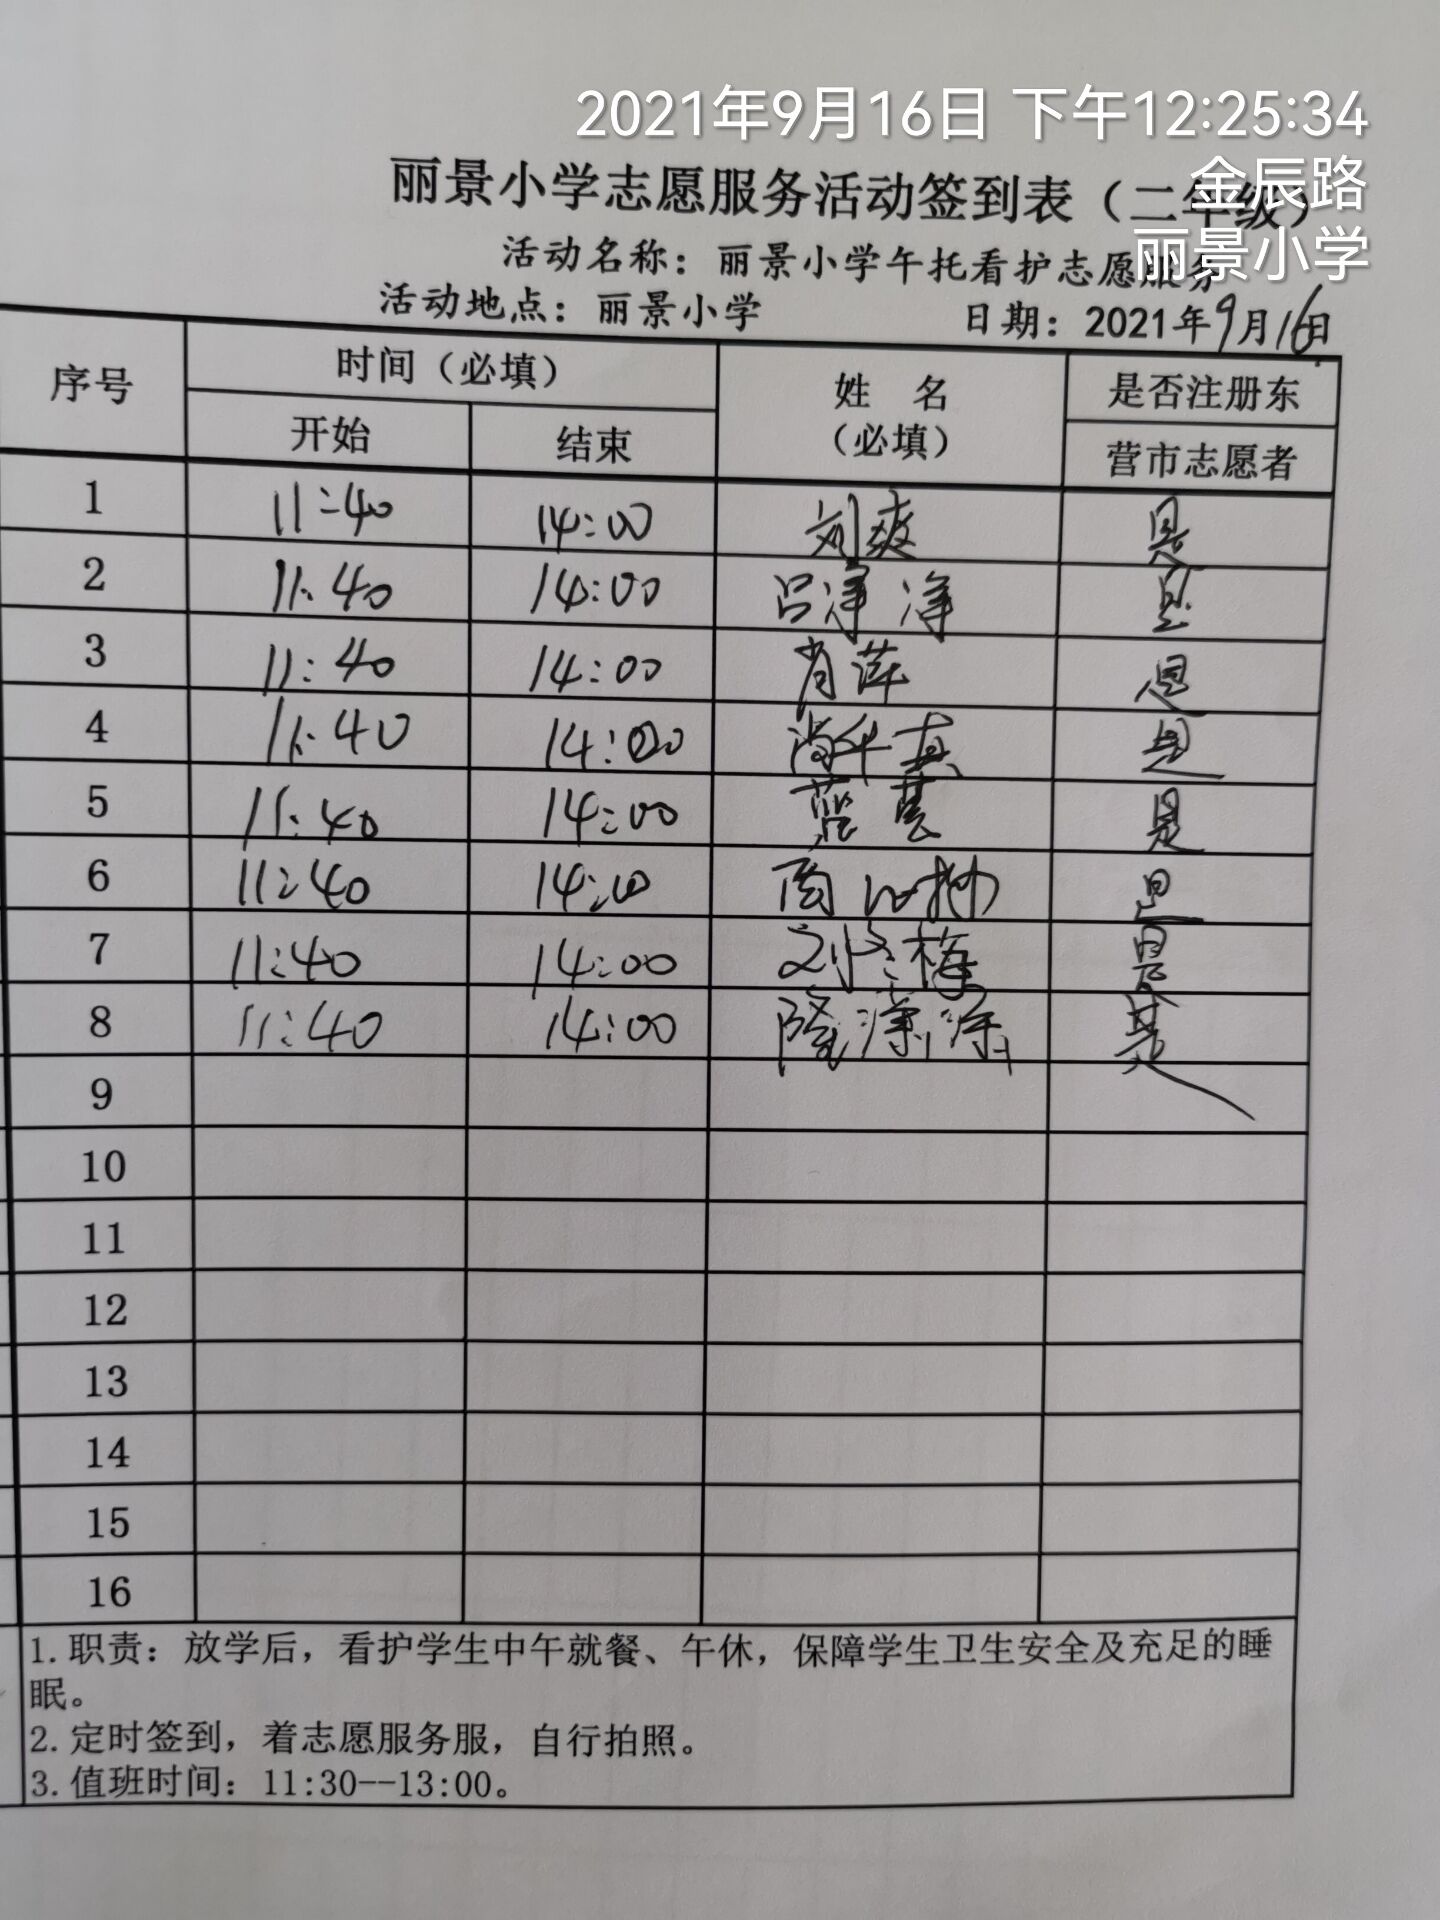 2021年9月16日 下午12:25:34
金辰路
丽景小学
丽景小学志愿服务活动签到表（二年级）
活动名称：丽景小学午托看护志愿服务
活动地点：丽景小学 日期：2021年9月16日
序号 时间（必填） 姓 名（必填） 是否注册东营市志愿者
开始 结束
1 11:40 14:00 刘爽 是
2 11:40 14:00 吕净净 是
3 11:40 14:00 肖萍 是
4 11:40 14:00 是
5 11:40 14:00 是
6 11:40 14:00 是
7 11:40 14:00 刘冬梅 是
8 11:40 14:00 是
9
10
11
12
13
14
15
16
1.职责：放学后，看护学生中午就餐、午休，保障学生卫生安全及充足的睡
眠。
2.定时签到，着志愿服务服，自行拍照。
3.值班时间：11:30--13:00。